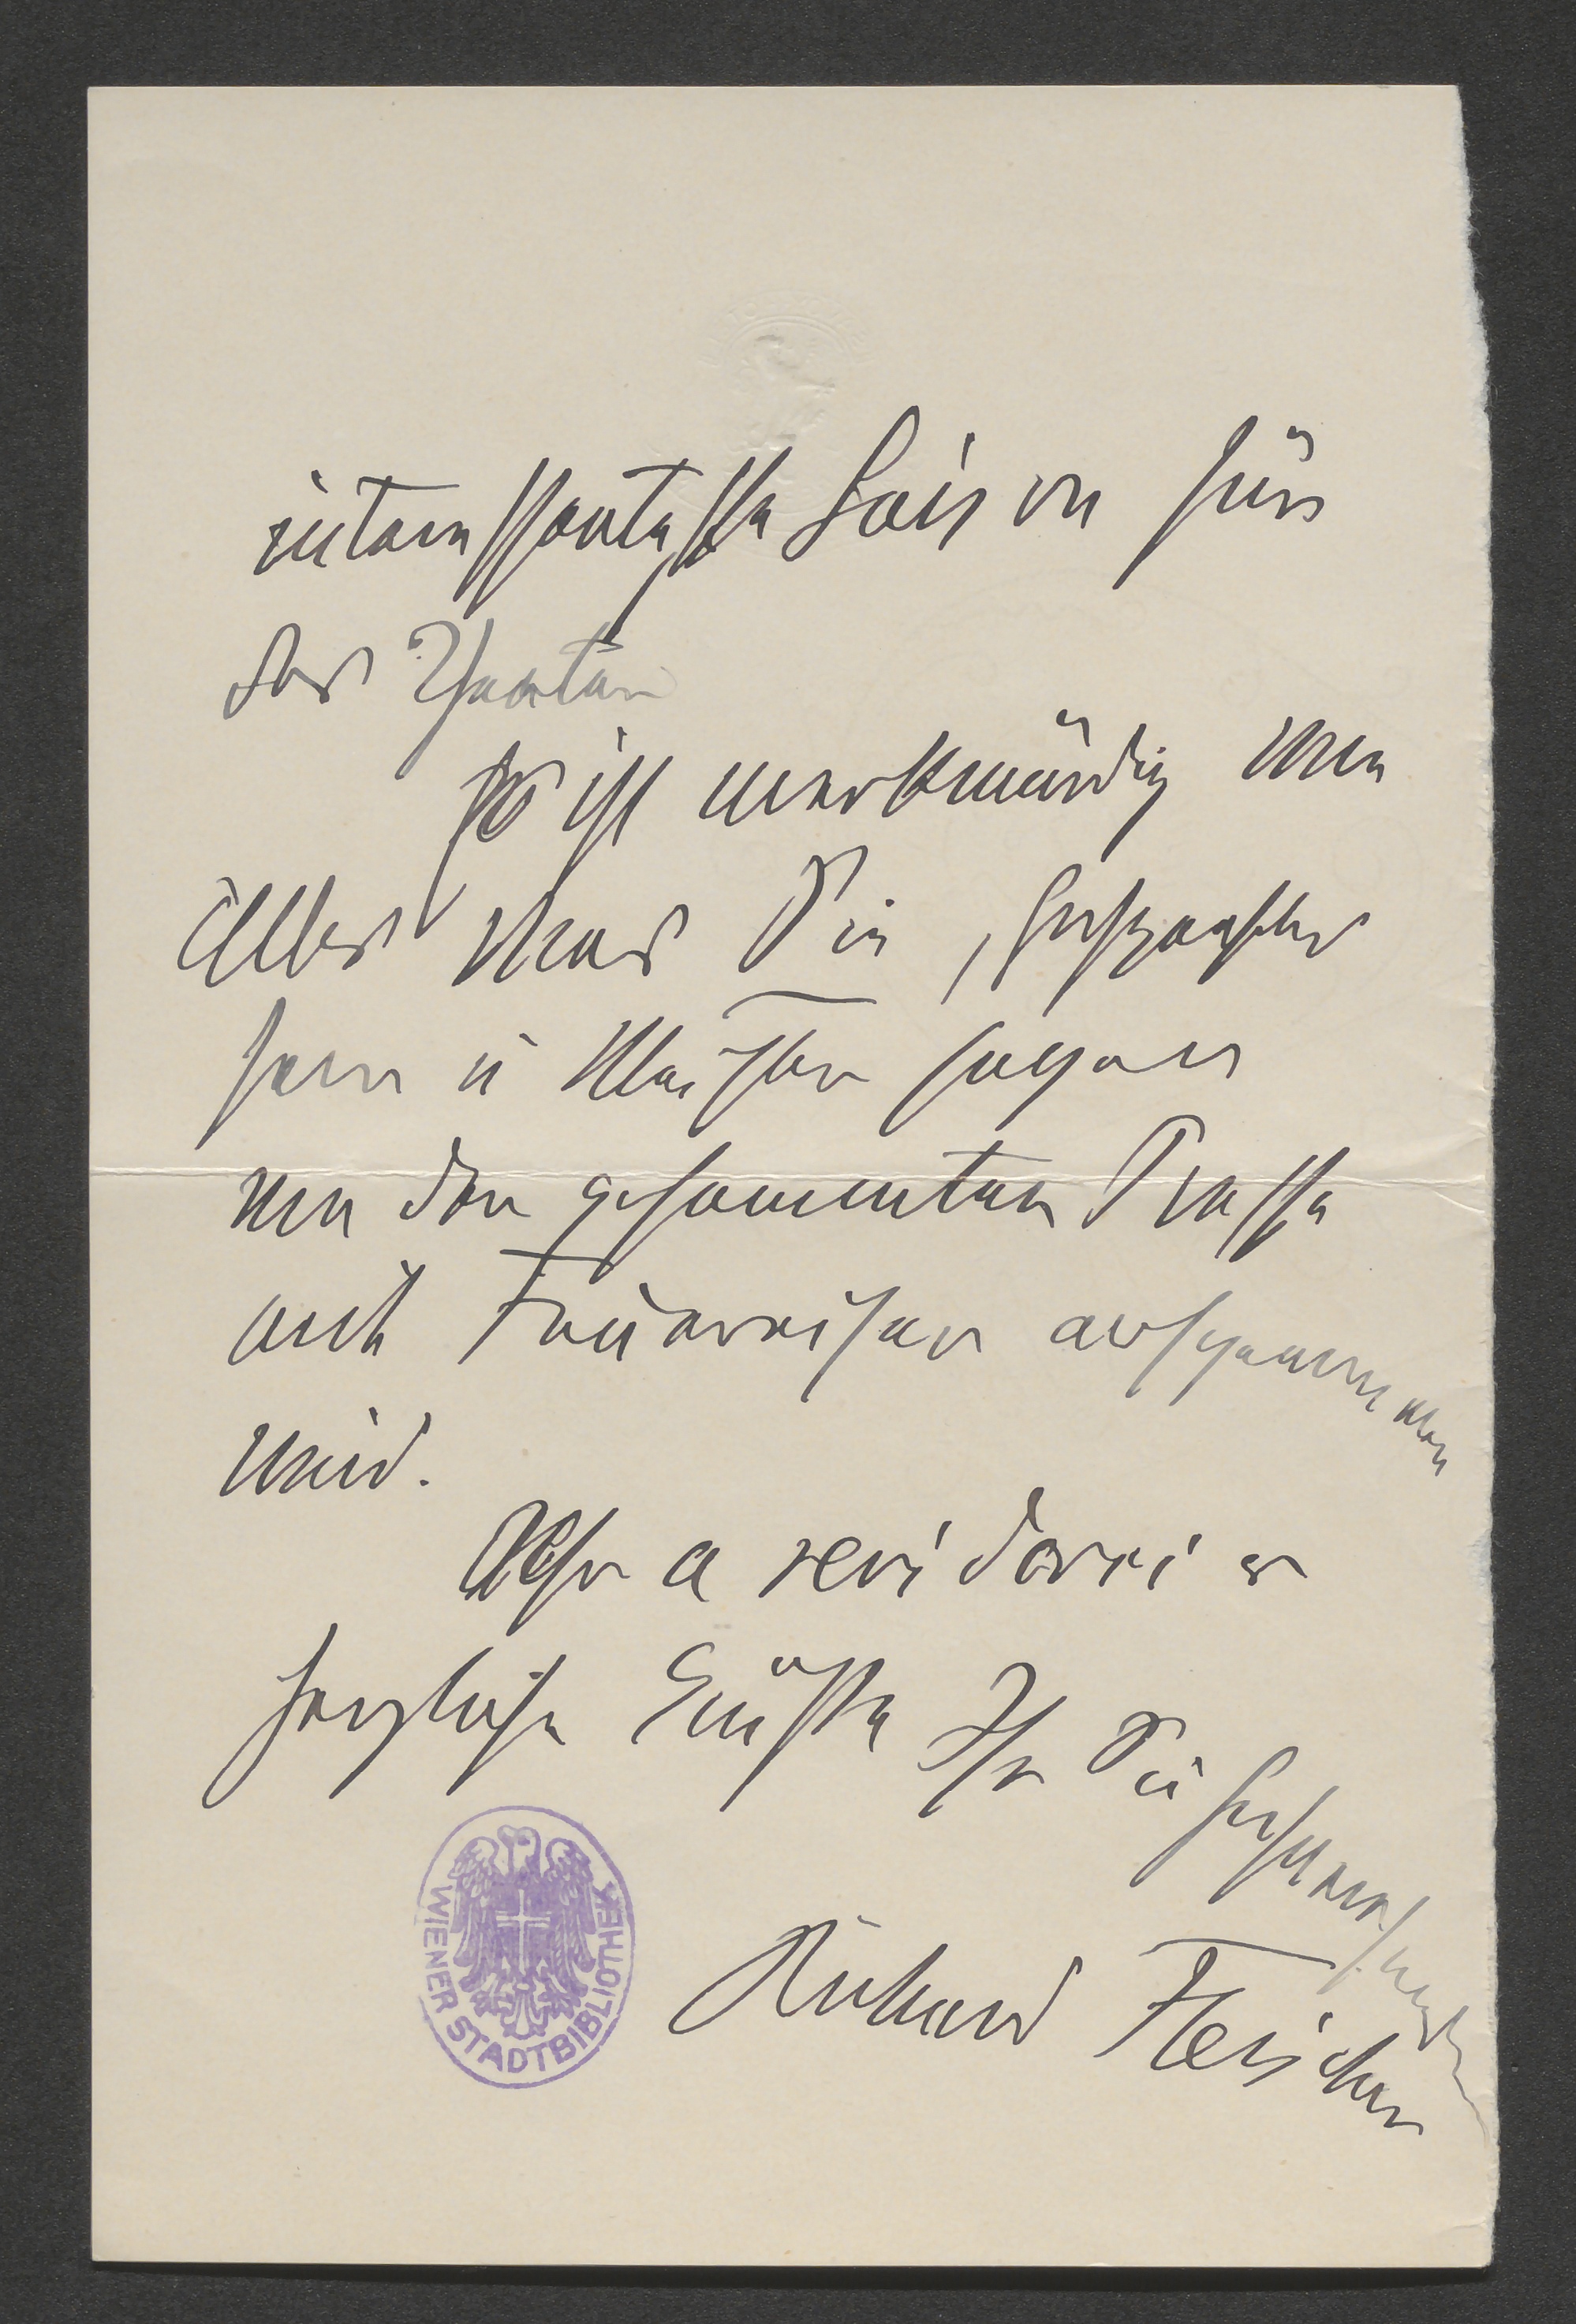 interessanteste Saison für
das Theater
Es ist merkwürdig wie
Alles was Sie, hochgeehrter
Herr u Meister sagen
von der gesammten Presse
mit Feuereifer aufgenommen
wird.
Also a reviderci er
herzliche Grüße Ihr Sie hochverehrender
Richard Fleischer
WIENER STADTBIBLIOTHEK